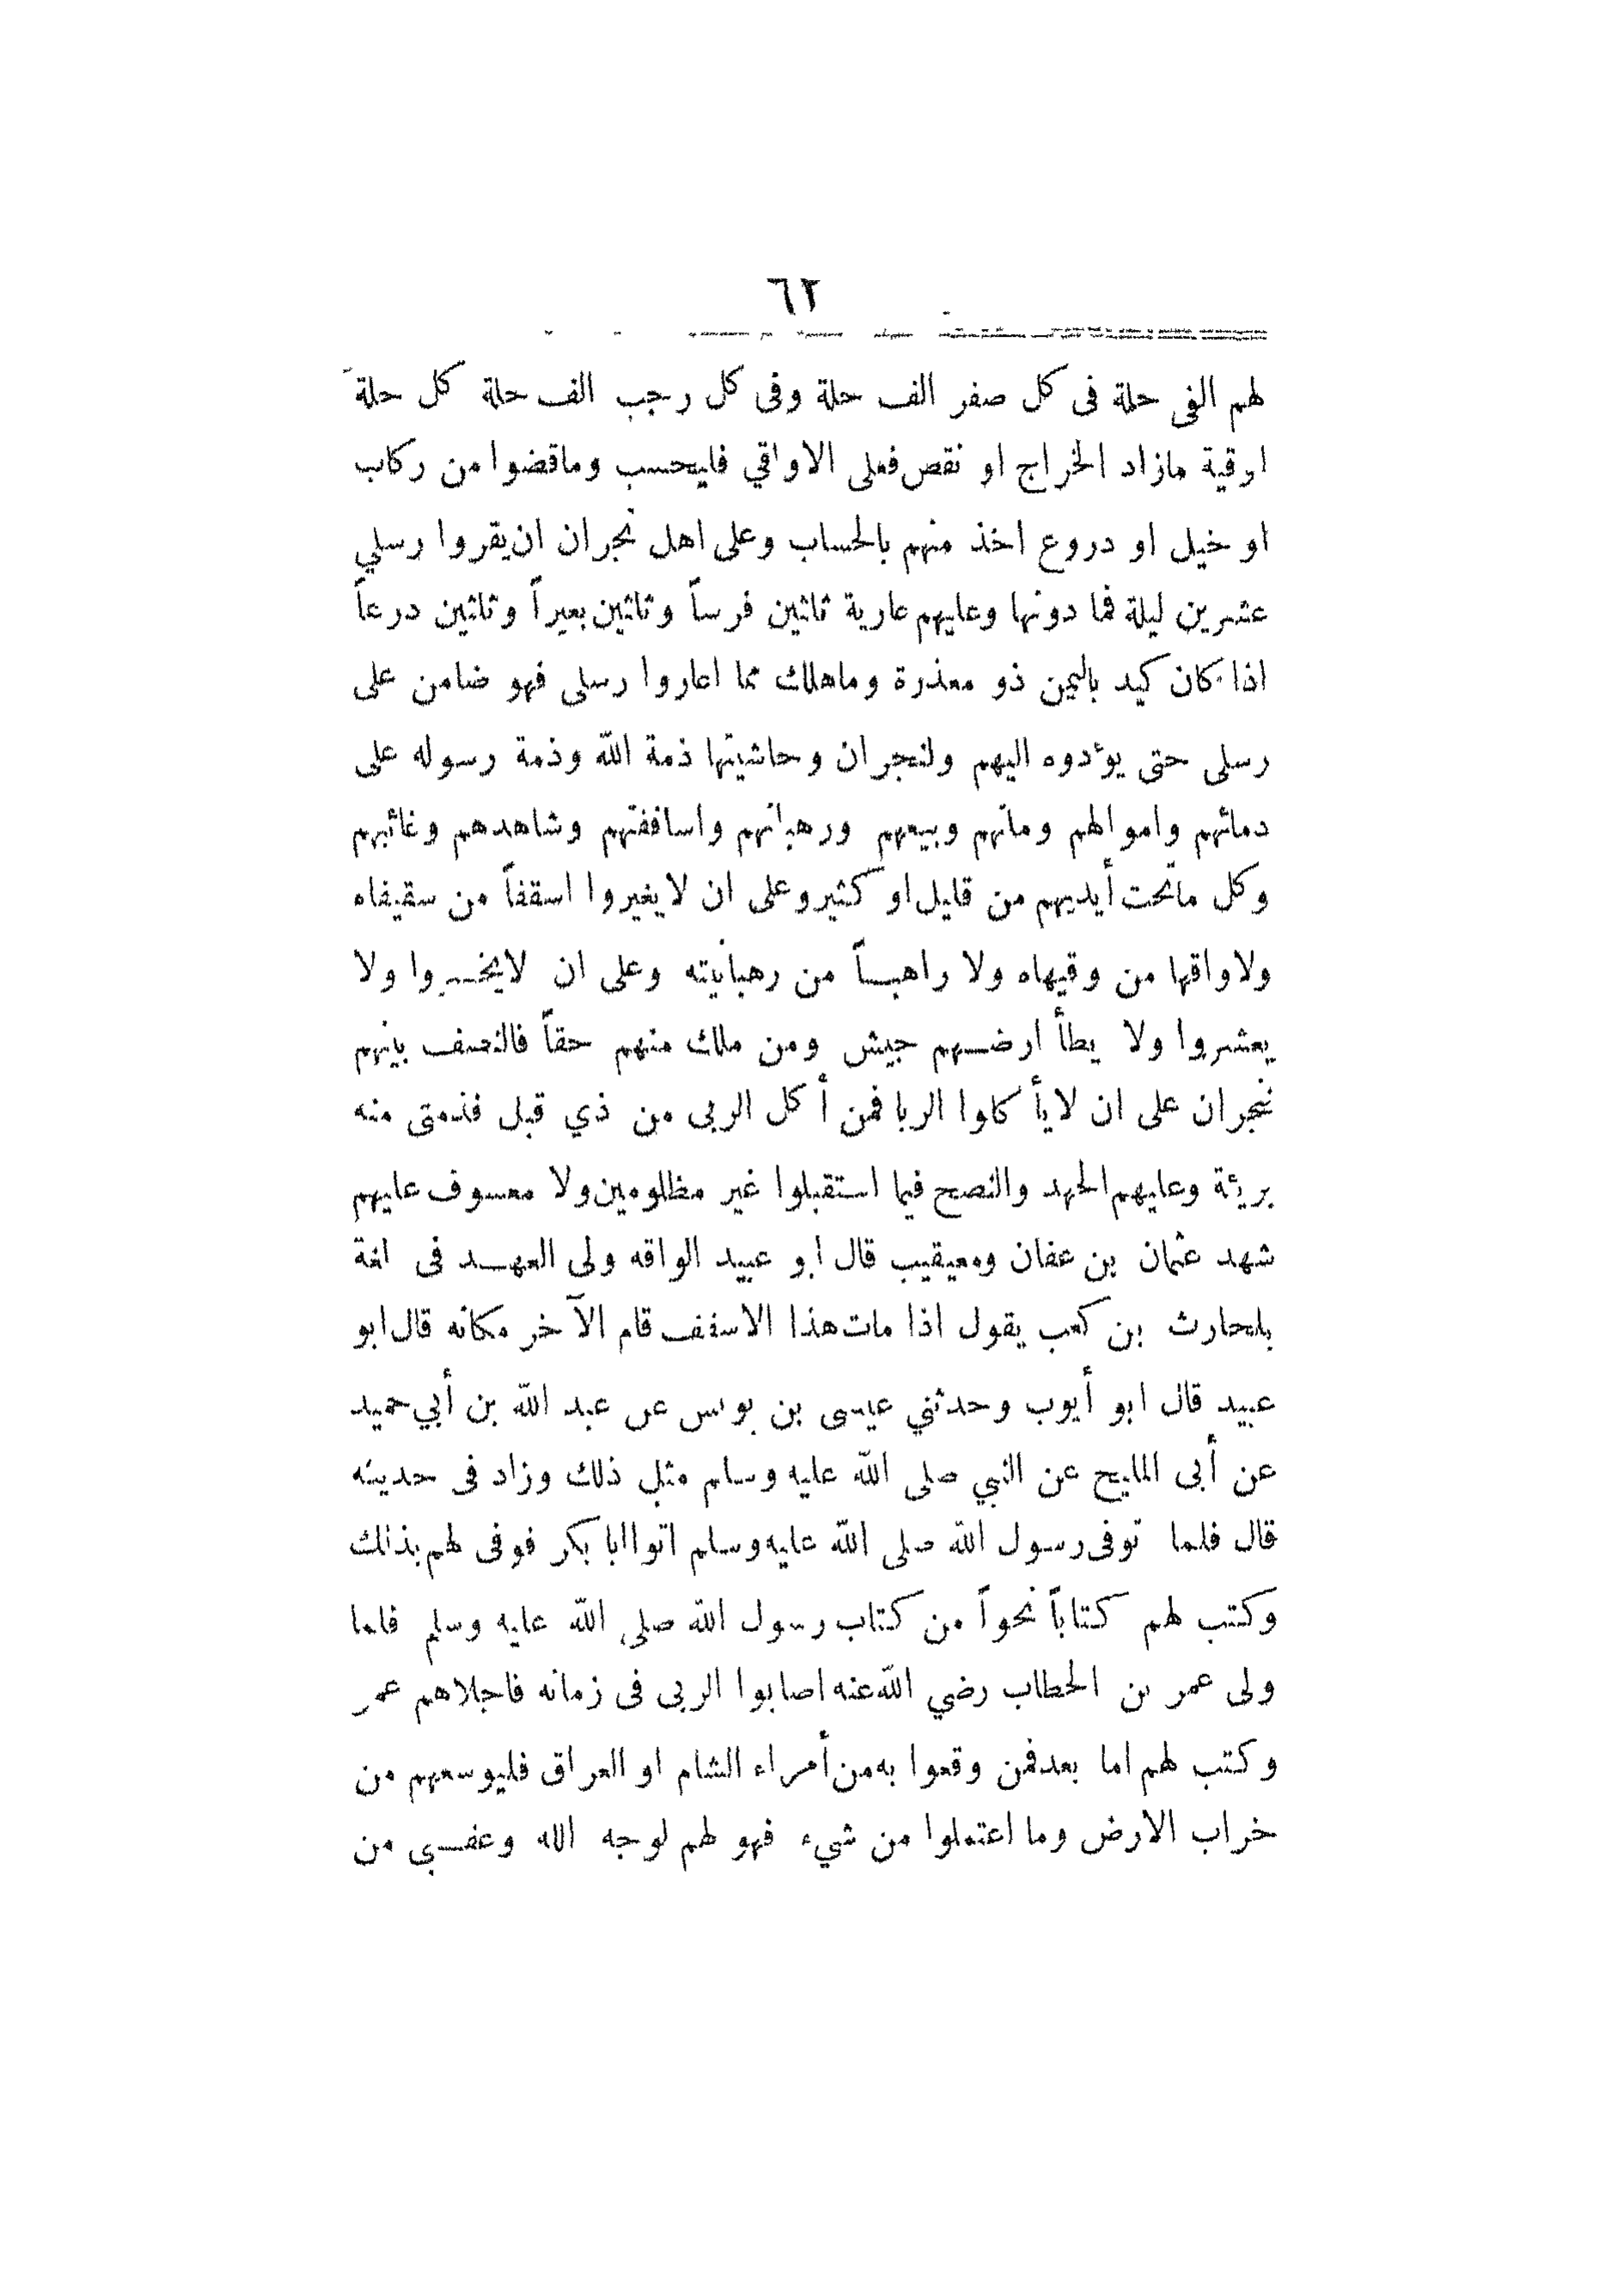 ٦٢
لهم الفى حلة فى كل صفر الف حلة وفى كل رجب الف حلة كل حلة
اوقية مازاد الخراج او نقص فعلى الاواقي فليحسب وماقضوا من ركاب
او خيل او دروع اخذ منهم بالحساب وعلى اهل نجران ان يقروا رسلي
عشرين ليلة فما دونها وعليهم عارية ثلثين فرساً وثلثين بعيراً وثلثين درعاً
اذا كان كيد باليمن ذو معذرة وماهلك مما اعاروا رسلى فهو ضامن على
رسلى حتى يؤدوه اليهم ولنجران وحاشيتها ذمة الله وذمة رسوله على
دمائهم واموالهم وملتهم وبيعهم ورهبانهم واساقفتهم وشاهدهم وغائبهم
وكل ماتحت أيديهم من قليل او كثير وعلى ان لايغيروا اسقفاً من سقيفاه
ولاواقها من وقيهاه ولا راهباً من رهبانيته وعلى ان لايخسروا ولا
يعشروا ولا يطأ ارضهم جيش ومن ملك منهم حقاً فالنصف بينهم
نجران على ان لايأ كلوا الربا فمن أ كل الربى من ذي قبل فذمتى منه
بريئة وعليهم الجهد والنصح فيما استقبلوا غير مظلومين ولا معسوف عليهم
شهد عثمان بن عفان ومعيقيب قال ابو عبيد الواقه ولى العهد فى لغة
بلحارث بن كعب يقول اذا مات هذا الاسقف قام الآخر مكانه قال ابو
عبيد قال ابو أيوب وحدثني عيسى بن يونس عن عبد الله بن أبي حميد
عن أبى المليح عن النبي صلى الله عليه وسلم مثل ذلك وزاد فى حديثه
قال فلما توفى رسول الله صلى الله عليه وسلم اتوا ابا بكر فوفى لهم بذلك
وكتب لهم كتاباً نحواً من كتاب رسول الله صلى الله عليه وسلم فلما
ولى عمر بن الخطاب رضي الله عنه اصابوا الربى فى زمانه فاجلاهم عمر
وكتب لهم اما بعد فمن وقعوا به من أمراء الشام او العراق فليوسعهم من
خراب الارض وما اعتملوا من شيء فهو لهم لوجه الله وعقبى من